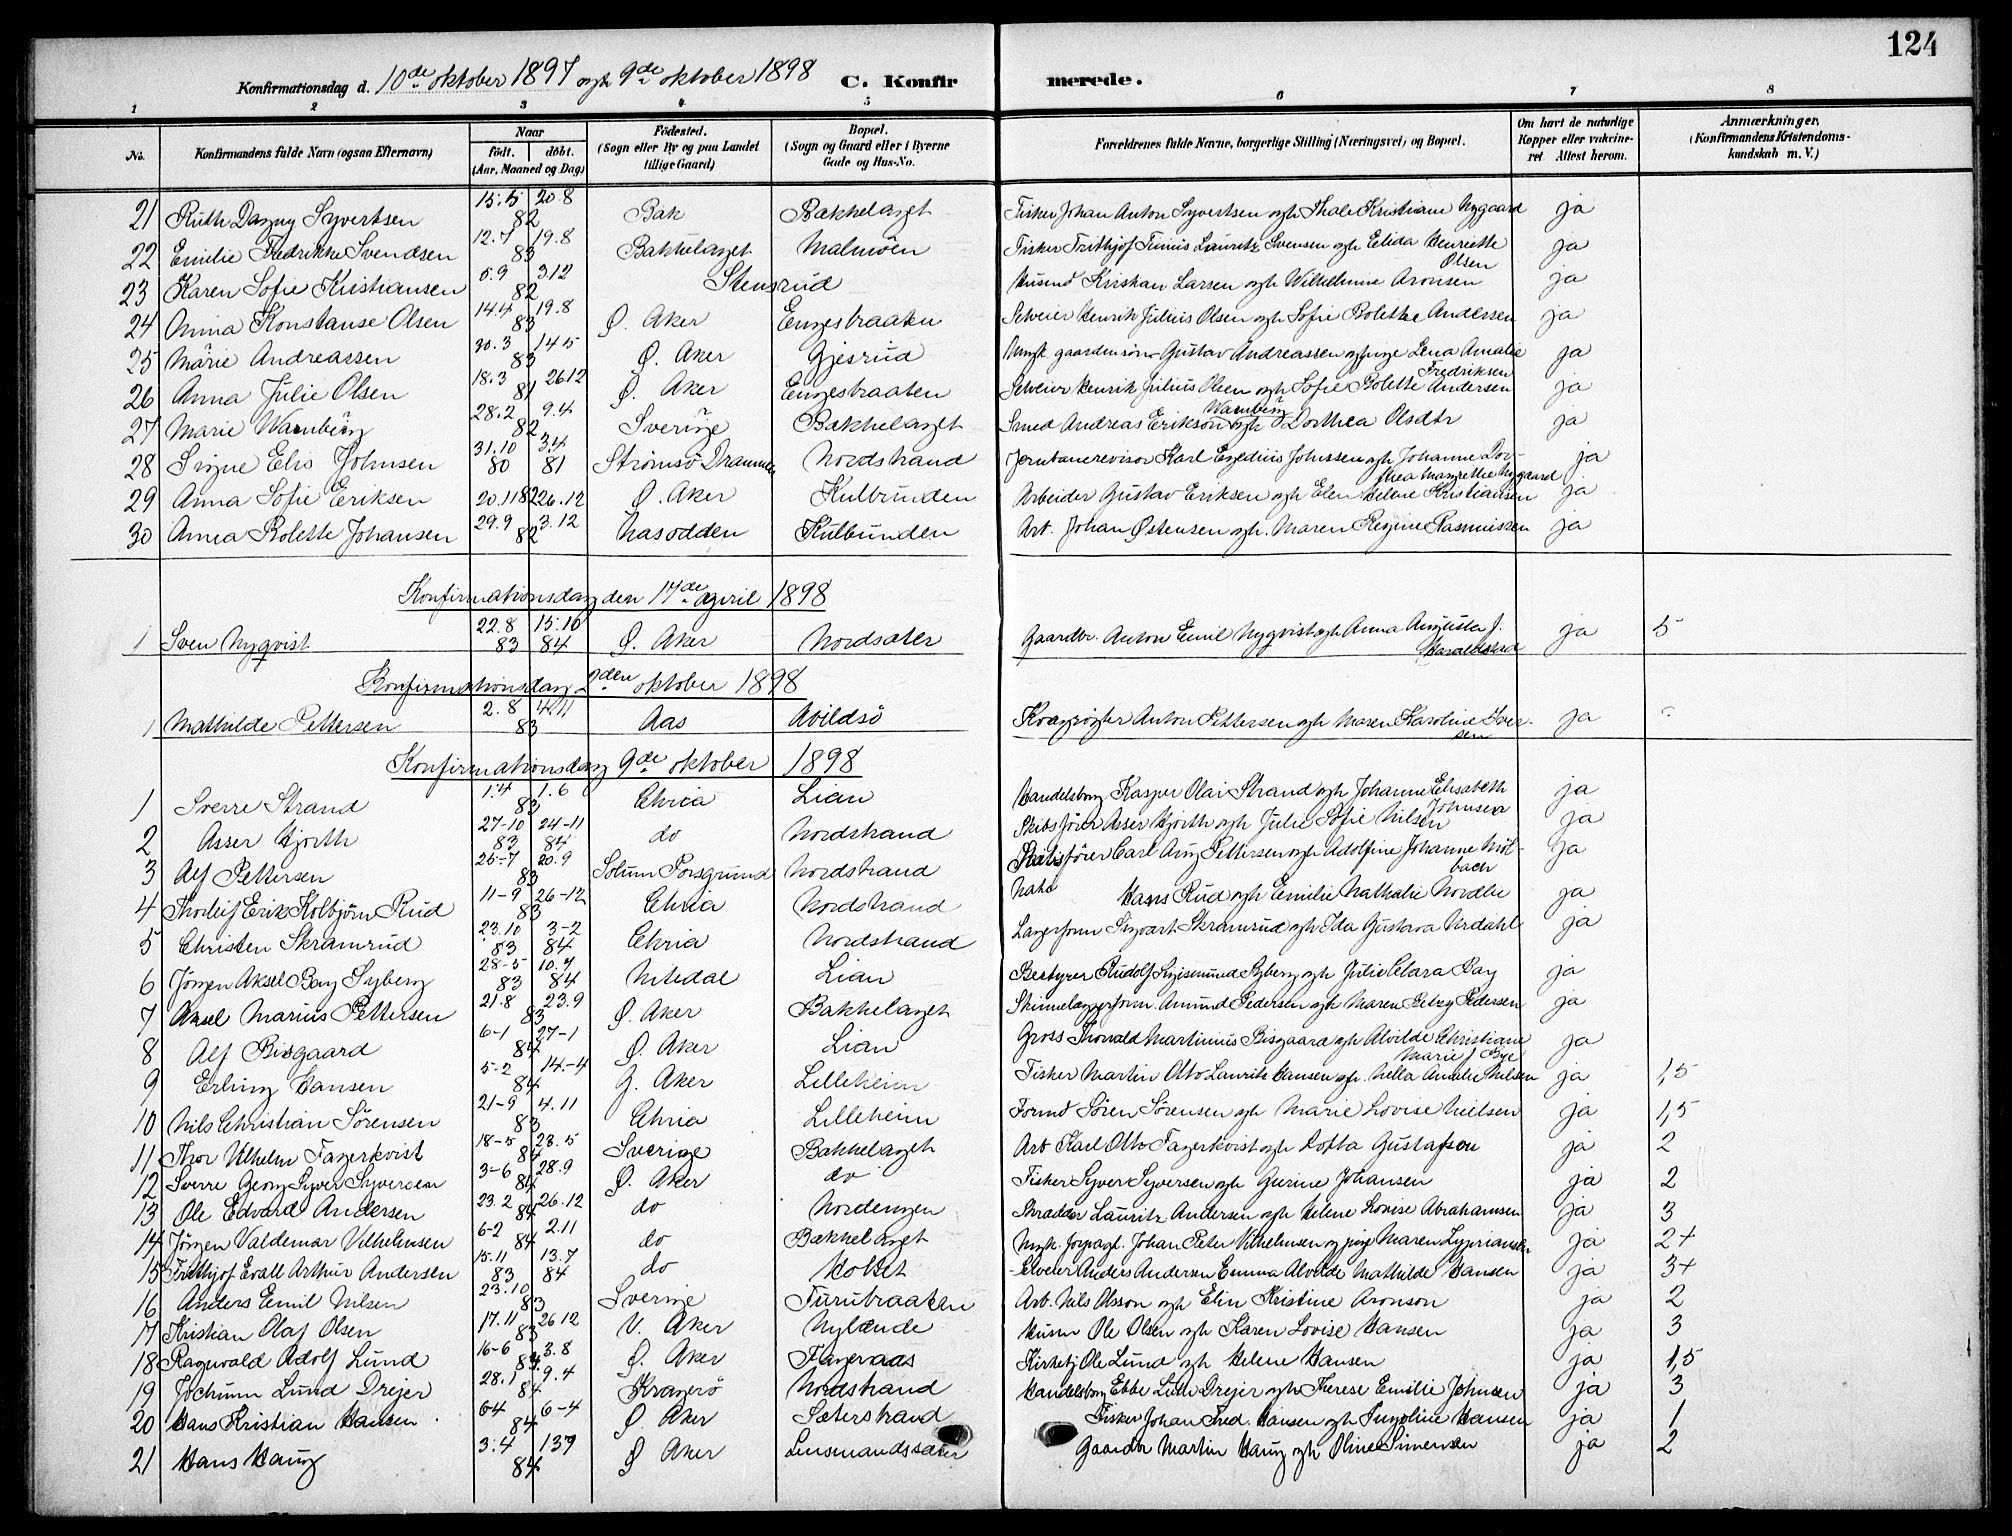 124
Konfirmationsdag d. 10de oktober 1897 og 9de oktober 1898 C. Konfirmerede.
1 2 3 4 5 6 7 8
No. Konfirmandens fulde Navn (ogsaa Efternavn) Naar födt. döbt. (Aar, Maaned og Dag) Födested. (Sogn eller By og paa Landet tillige Gaard) Bopæl. (Sogn og Gaard eller i Byerne Gade og Hus-No. Forældrenes fulde Navne, borgerlige Stilling (Næringsvei) og Bopæl. Om havt de naturlige Kopper eller vakcineret Attest herom. Anmærkninger. (Konfirmandens Kristendomskundskab m. V.)
21 Ruth Dagny Syvertsen 15.5 20.8 82 Bæk Bækkelaget Fisker Johan Anton Syvertsen og h Thale Kristiane Nygaard ja
22 Emilie Fredrikke Svendsen 12.7 19.8 83 Bækkelaget Malmöen Fisker Frithjof Tinius Lauritz Svensen og h Elida Henriette Olsen ja
23 Karen Sofie Kristiansen 5.9 3.12 82 Stensrud Husmd Kristian Larsen og h Wilhelmine Aronsen ja
24 Anna Konstanse Olsen 14.4 19.8 83 Ø. Aker Engesbraaten Selveier Henrik Julius Olsen og h Sofie Bolette Andersen ja
25 Marie Andreassen 30.3 14.5 83 Ø. Aker Gjesrud Ungk. gaardmansön Gustav Andreassen og pige Lena Amalie Fredriksen ja
26 Anna Julie Olsen 18.3 26.12 81 Ø. Aker Engesbraaten Selveier Henrik Julius Olsen og h Sofie Bolette Andersen ja
27 Marie Warnberg 28.2 9.4 82 Sverige Bækkelaget Smed Andreas Erikson Warnberg og h Dorthea Olsdtr ja
28 Signe Elis Johnsen 31.10 80 3.4 81 Strömsö Drammen Nordstrand Jernbanerevisor Karl Egedius Johnsen og h Johanne Dorthea Margrethe Nygaard ja
29 Anna Sofie Eriksen 20.11 82 26.12 Ø. Aker Kulbunden Arbeider Gustav Eriksen og h Elen Helene Kristiansen ja
30 Anna Bolette Johansen 29.9 3.12 82 Nasodden Kulbunden Arb. Johan Østensen og h. Maren Regine Rasmussen ja
Konfirmationsdag den 17de april 1898
1 Sven Nyqvist 22.8 83 15.10 84 Ø. Aker Nordsæter Gaardbr. Anton Emil Nyqvist og h Anna Augusta J. Haraldstad ja 5
Konfirmationsdag 2den oktober 1898
1 Mathilde Pettersen 2.8 4.11 83 Aas Abildsö Kvægrögter Anton Pettersen og h Maren Karoline Iversen ja
Konfirmationsdag 9de oktober 1898
1 Sverre Strand 1.4 1.6 83 Chria Lian Handelsborg Kasper Olai Strand og h Johanne Elisabeth Johnsen ja
2 Asser Hjorth 27-10 83 24-11 84 do Nordstrand Skibsförer Asser Hjorth og h Julie Sofie Nilsen ja
3 Alf Pettersen 25-7 20.9 83 Solum Porsgrund Nordstrand Skibsförer Carl Aug Pettersen og h Adolfine Johanne Mölbach ja
4 Thorleif Erik Kolbjörn Rud 11-9 26-12 83 Chria Nordstrand Hans Rud og h Emilie Nathalie Nordlie ja
5 Christen Skramrud 23.10 83 3-2 84 Chria Nordstrand Lagerform Sigvart Skramrud og h Ida Gustava Urdahl ja
6 Jörgen Aksel Bay Syberg 28-5 83 10.7 84 Nitedal Lian Bestyrer Rudolf Sigismund Syberg og h Julie Clara Bay ja
7 Aksel Marius Pettersen 21.8 23.9 83 Ø. Aker Bækkelaget Skinnelæggerform. Amund Pedersen og h Maren Pedersen ja
8 Alf Bisgaard 6-1 27-1 84 Ø. Aker Lian Gross Thorvald Martinius Bisgaard og h Alvilde Christiane Marie J Bye ja
9 Erling Hansen 5-2 14.-4 84 Ø. Aker Lilleheim Fisker Martin Otto Lauritz Hansen og h. Nella Amalie Nilsen ja 1,5
10 Nils Christian Sörensen 21-9 4.11 83 Chria Lilleheim Formd Sören Sörensen og h Marie Lovise Nielsen ja 1,5
11 Thor Vilhelm Fagerkvist 18-5 23.5 84 Sverige Bækkelaget Arb Karl Otto Fagerkvist og h Lotta Gustafson ja 2
12 Sverre Georg Syver Syversen 3-6 28.9 84 Ø. Aker do Fisker Syver Syversen og h Gurine Johansen ja 2
13 Ole Edvard Andersen 23.2 26.12 84 do Nordengen Skrædder Lauritz Andersen og h Helene Lovise Abrahamsen ja 3
14 Jörgen Valdemar Vilhelmsen 6-2 2.11 84 do Bækkelaget Ungk. forpagt. Johan Peter Vilhelmsen og pige Maren Lypriansen ja 2+
15 Frithjof Evall Arthur Andersen 15.11 83 13.7 84 do Holtet Selveier Anders Andersen Emma Alvilde Mathilde Hansen ja 3+
16 Anders Emil Nilsen 23.10 83 Sverige Furubraaten Arb. Nils Olsson og h Elin Kristine Aronson ja 2
17 Kristian Olaf Olsen 17.11 26.12 83 V. Aker Nylænde Husm Ole Olsen og h Karen Lovise Hansen ja 3
18 Ragnvald Adolf Lund 16-6 3.8 84 Ø. Aker Fageraas Kirketj Ole Lund og h Helene Hansen ja 1,5
19 Jochum Lund Drejer 28.1 9.4 84 Kragerö Nordstrand Handelsborg Ebbe Lund Drejer og h Therese Emilie Johnsen ja 3
20 Hans Kristian Hansen 6-4 6-4 84 Ø Aker Sæterstrand Fisker Johan Fred. Hansen og h Hansen ja 1
21 Hans Haug 3.4 13.9 84 Ø Aker Lensmandssæter Gaardbr Martin Haug og h Oline Simensen ja 2